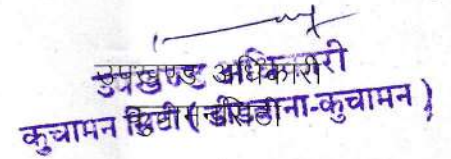 उपखण्ड अधिकारी
कुचामन सिटी (डीडवाना-कुचामन)